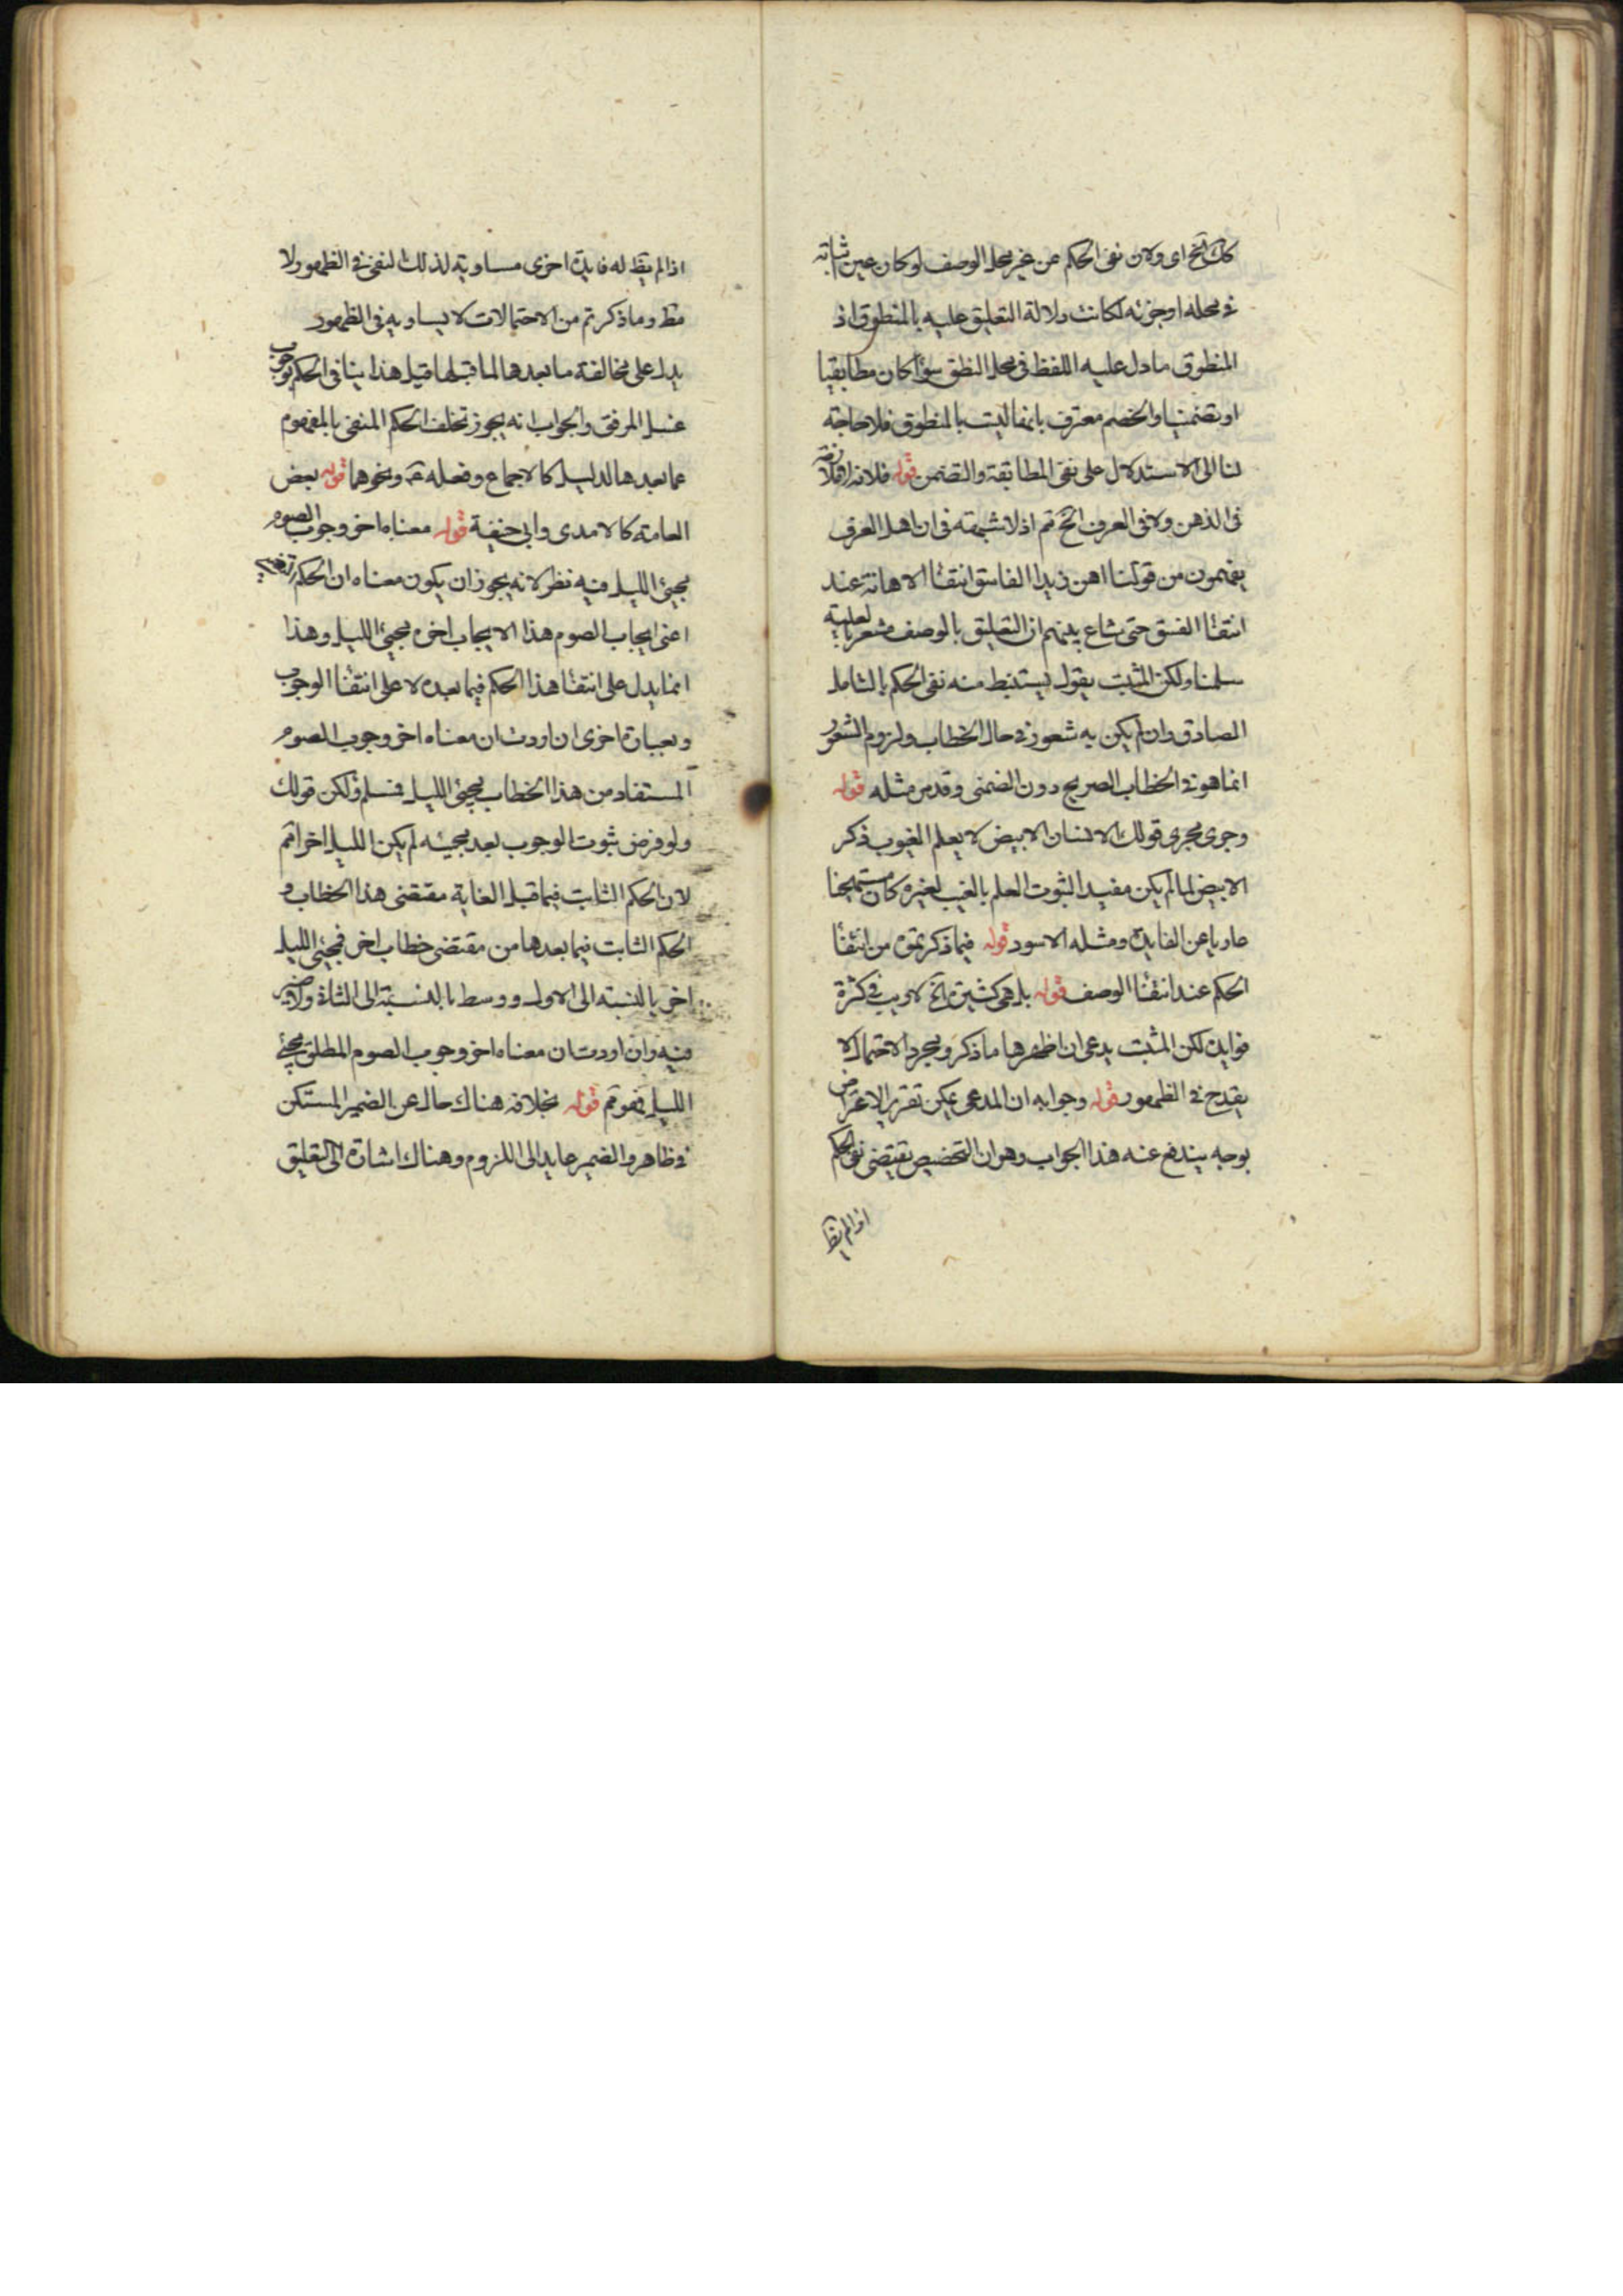 كك الخ اى ولان نفى الحكم عن غير محل الوصف لو كان عين ثباته
فى محله او جزئه لكانت دلالة التعليق عليه بالمنطوق اذ
المنطوق ما دل عليه اللفظ فى محل النطق سواء كان مطابقيا
او تضمنيا والخصم معترف بانها ليست بالمنطوق فلا حاجة
لنا الى الاستدلال على نفى المطابقة والتضمن قوله فلانه لا ملازمة
فى الذهن ولا فى العرف الخ تم اذ لا شبهة فى ان اهل العرف
يفهمون من قولنا اهن زيدا الفاسق انتفاء الاهانة عند
انتفاء الفسق حتى شاع بينهم ان التعليق بالوصف مشعر بالعلية
سلمنا ولكن المثبت يقول يستنبط منه نفى الحكم بالتامل
الصادق وان لم يكن به شعور فى حال الخطاب ولزوم الشعور
انما هو فى الخطاب الصريح دون الضمنى وقد مر مثله قوله
وجرى مجرى قولك الانسان الابيض لا يعلم الغيوب ذكر
الابيض لما لم يكن مفيدا لثبوت العلم بالغيب لغيره كان مستهجنا
عاريا عن الفايدة ومثله الاسود قوله فيما ذكرتموه من انتفاء
الحكم عند انتفاء الوصف قوله بل هى كثيرة الخ لا ريب فى كثرة
فوايده لكن المثبت يدعى ان اظهرها ما ذكر ومجرد الاحتمال لا
يقدح فى الظهور قوله وجوابه ان المدعى يمكن تقرير الاعتراض
بوجه يندفع عنه هذا الجواب وهو ان التخصيص يقتضى نفى الحكم
اذا لم يظ
اذا لم يظ له فايدة اخرى مساوية لذلك النفى فى الظهور ولا
مظ وما ذكرتم من الاحتمالات لا يساويه فى الظهور
يدل على مخالفة ما بعدها لما قبلها قيل هذا ينافى الحكم بوجوب
غسل المرفق والجواب انه يجوز تخلف الحكم المنفى بالمفهوم
عما بعدها لدليل كالاجماع وفعله ع ونحوهما قوله بعض
العامة كالامدى وابى حنيفة قوله معناه اخر وجوب الصوم
مجيئ الليل فيه نظر لانه يجوز ان يكون معناه ان الحكم
اعنى ايجاب الصوم هذا الايجاب اخره مجيئ الليل وهذا
انما يدل على انتفاء هذا الحكم فيما بعده لا على انتفاء الوجوب
وبعبارة اخرى ان اردت ان معناه اخر وجوب الصوم
المستفاد من هذا الخطاب مجيئ الليل فمسلم ولكن قولك
ولو فرض ثبوت الوجوب بعد مجيئه لم يكن الليل اخرا تم
لان الحكم الثابت فيما قبل الغاية مقتضى هذا الخطاب و
الحكم الثابت فيما بعدها من مقتضى خطاب اخر فمجيئ الليل
اخر بالنسبة الى الاول ووسط بالنسبة الى الثانى ولا ضير
فيه وان اردت ان معناه اخر وجوب الصوم المطلق مجيئ
الليل فهو تم قوله بخلافه هناك حال عن الضمير المستكن
فى ظاهر والضمير عايد الى اللزوم وهناك اشارة الى التعليق